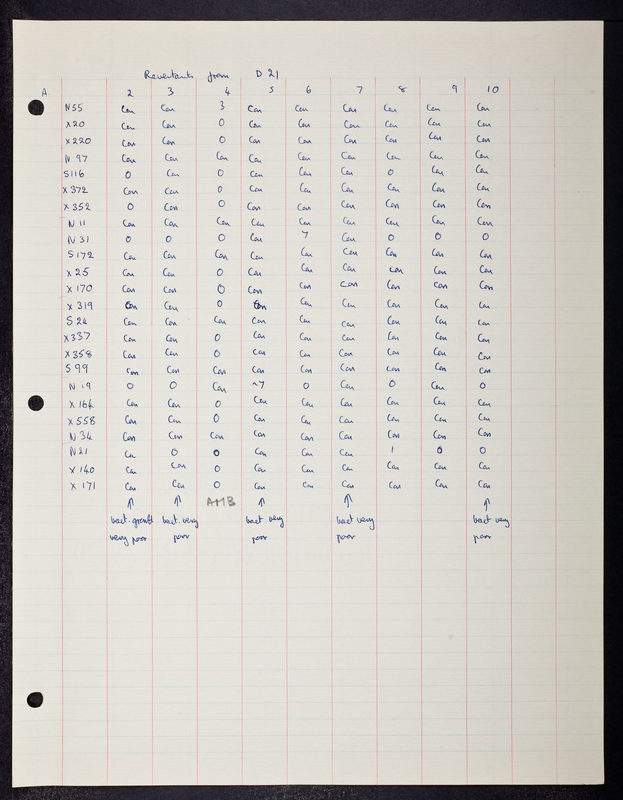 Revertants from D 21
A 2 3 4 5 6 7 8 9 10
N55 Con Con 3 Con Con Con Con Con Con
X20 Con Con 0 Con Con Con Con Con Con
X220 Con Con 0 Con Con Con Con Con Con
N 97 Con Con Con Con Con Con Con Con Con
S116 0 Con 0 Con Con Con 0 Con Con
X372 Con Con 0 Con Con Con Con Con Con
X 352 0 Con 0 Con Con Con Con Con Con
N 11 Con Con Con Con Con Con Con Con Con
N 31 0 0 0 Con 7 Con 0 0 0
S 172 Con Con Con Con Con Con Con Con Con
X 25 Con Con 0 Con Con Con Con Con Con
X 170 Con Con 0 Con Con Con Con Con Con
X 319 Con Con 0 Con Con Con Con Con Con
S 24 Con Con Con Con Con Con Con Con Con
X337 Con Con 0 Con Con Con Con Con Con
X358 Con Con 0 Con Con Con Con Con Con
S 99 Con Con Con Con Con Con Con Con Con
N 19 0 0 Con ~7 0 Con 0 Con 0
X 164 Con Con 0 Con Con Con Con Con Con
X 558 Con Con 0 Con Con Con Con Con Con
N 34 Con Con Con Con Con Con Con Con Con
N21 Con 0 0 Con Con Con 1 0 0
X 140 Con Con 0 Con Con Con Con Con Con
X 171 Con Con 0 Con Con Con Con Con Con
↑ ↑ AMB ↑ ↑ ↑
bact. growth bact. very bact very bact very bact very
very poor poor poor poor poor